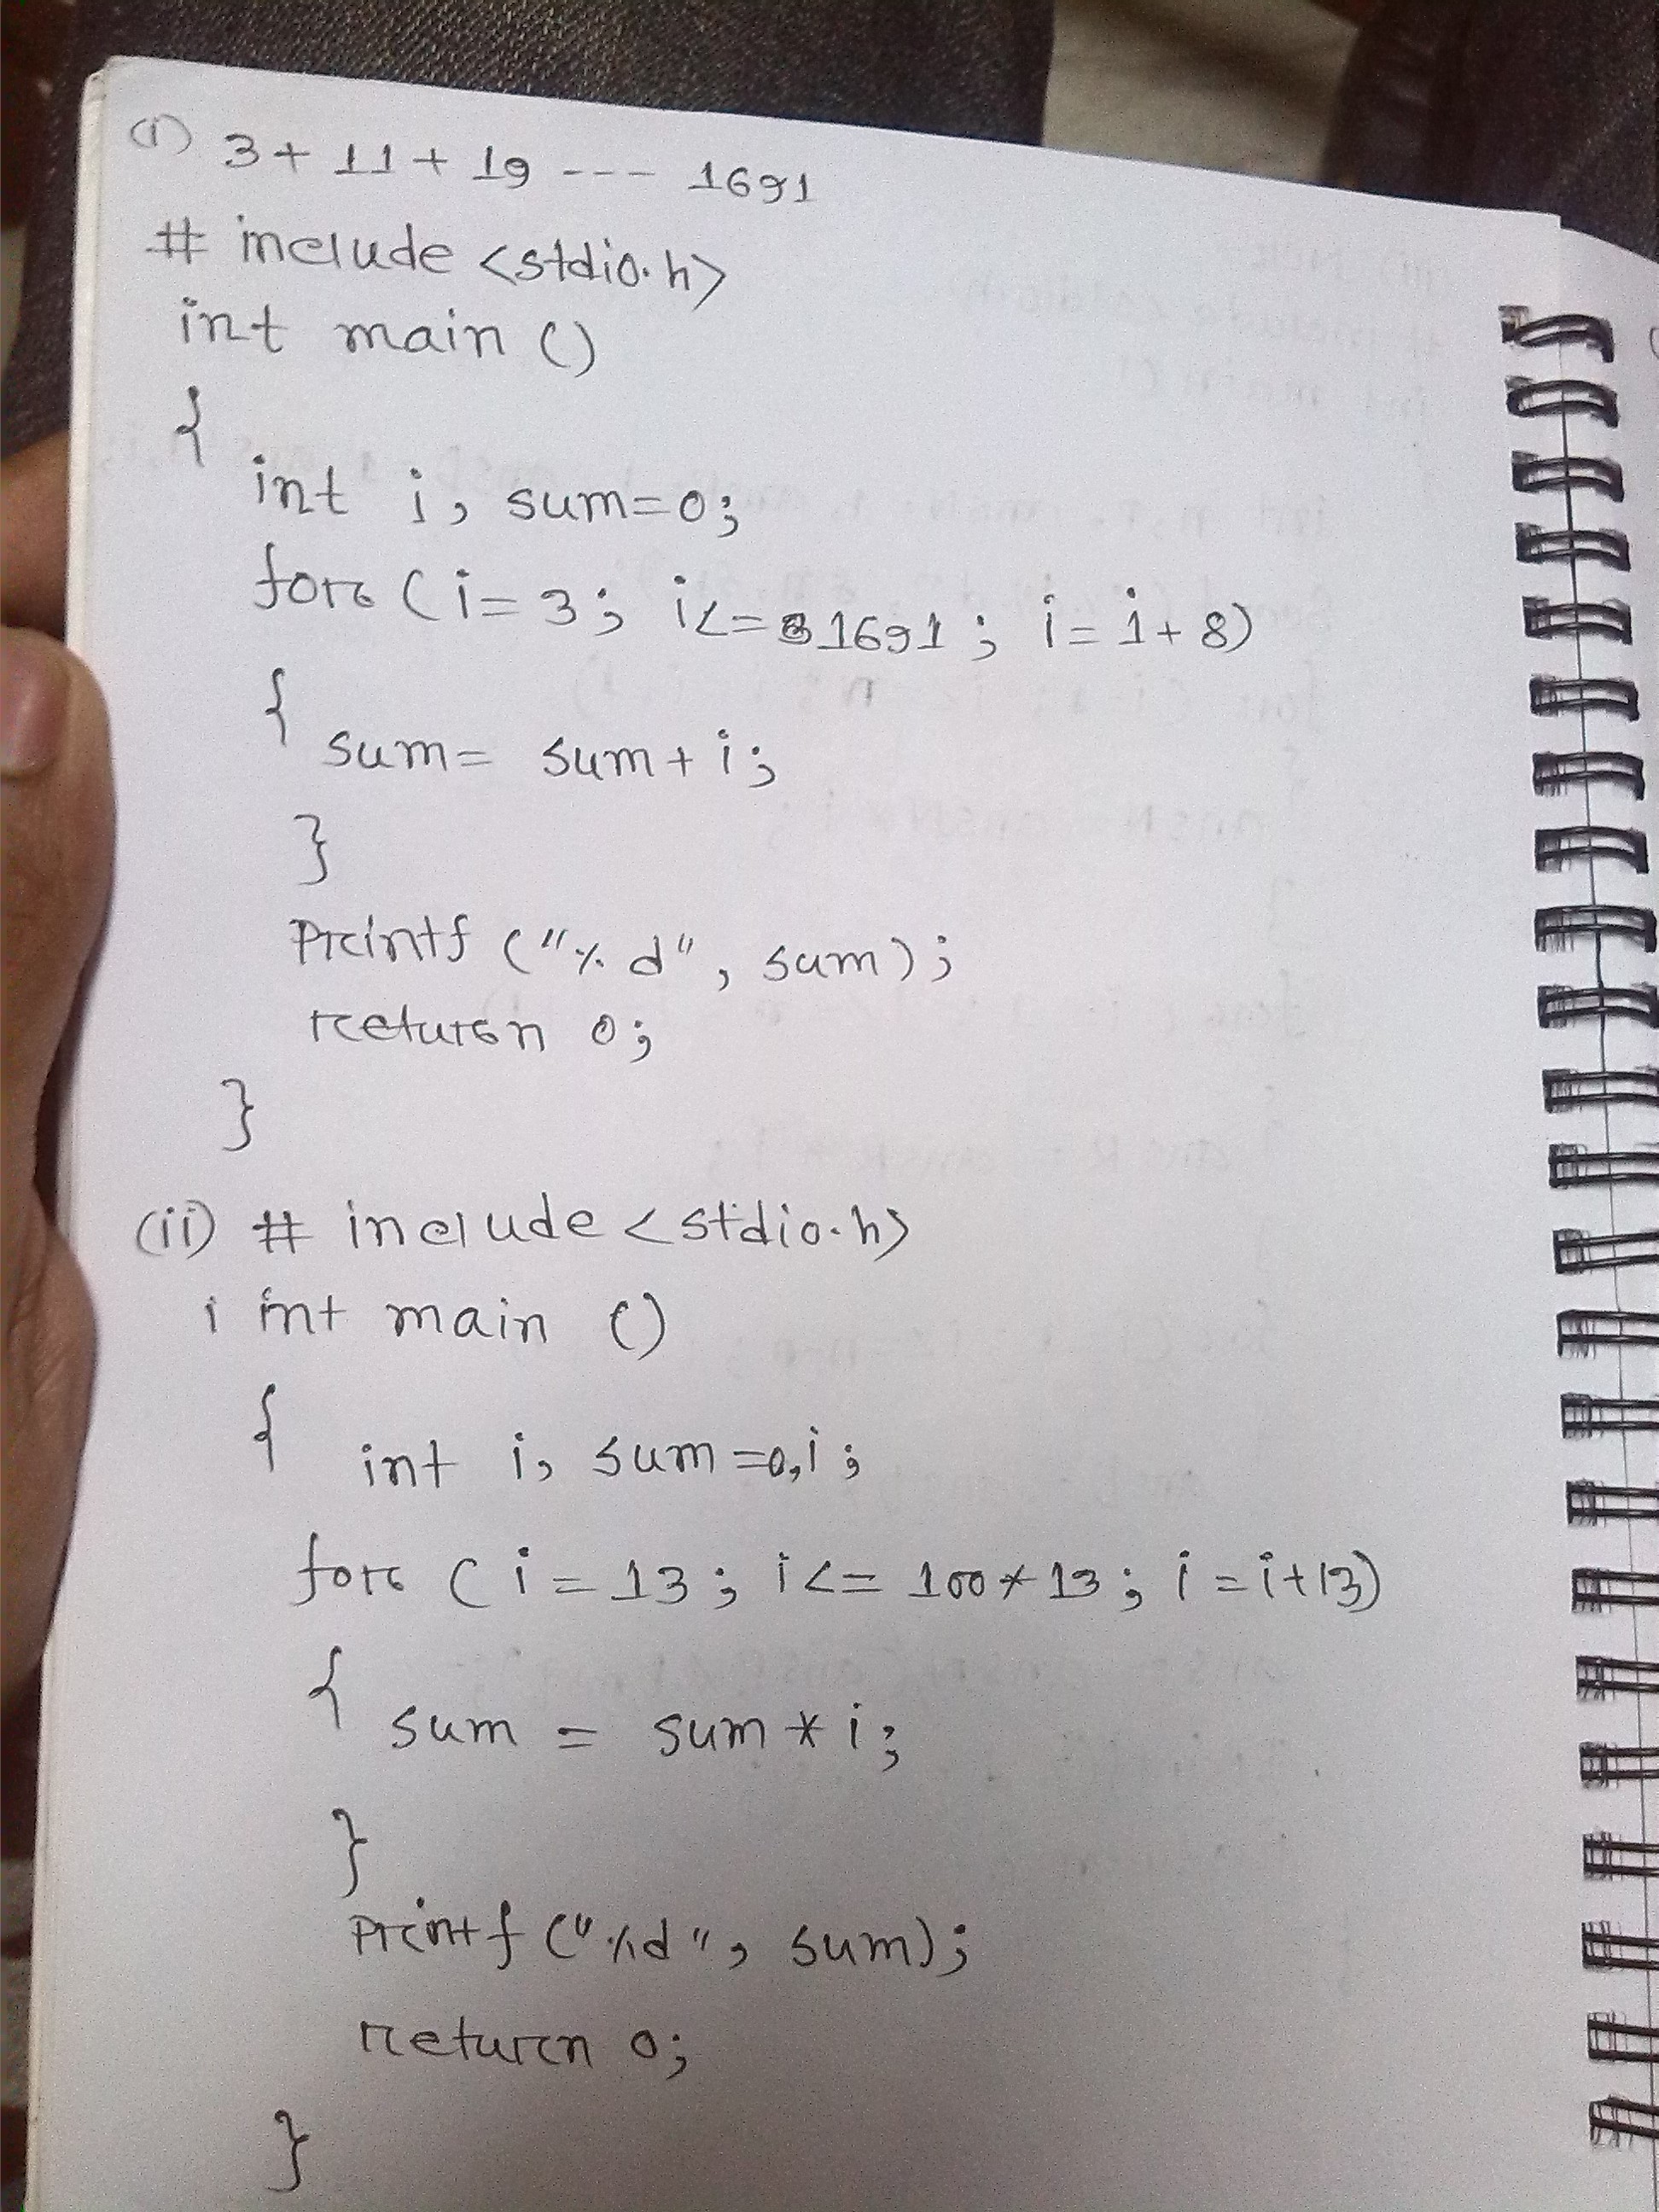 (i) 3 + 11 + 19 --- 1691
# include <stdio.h>
int main ()
{
int i, sum=0;
for (i=3; i<=1691; i=i+8)
{
sum= sum+i;
}
Printf ("%d", sum);
return 0;
}
(ii) # include <stdio.h>
i int main ()
{ int i, sum=0,i;
for (i=13; i<= 100*13; i=i+13)
{
sum = sum * i;
}
Printf ("%d", sum);
return 0;
}